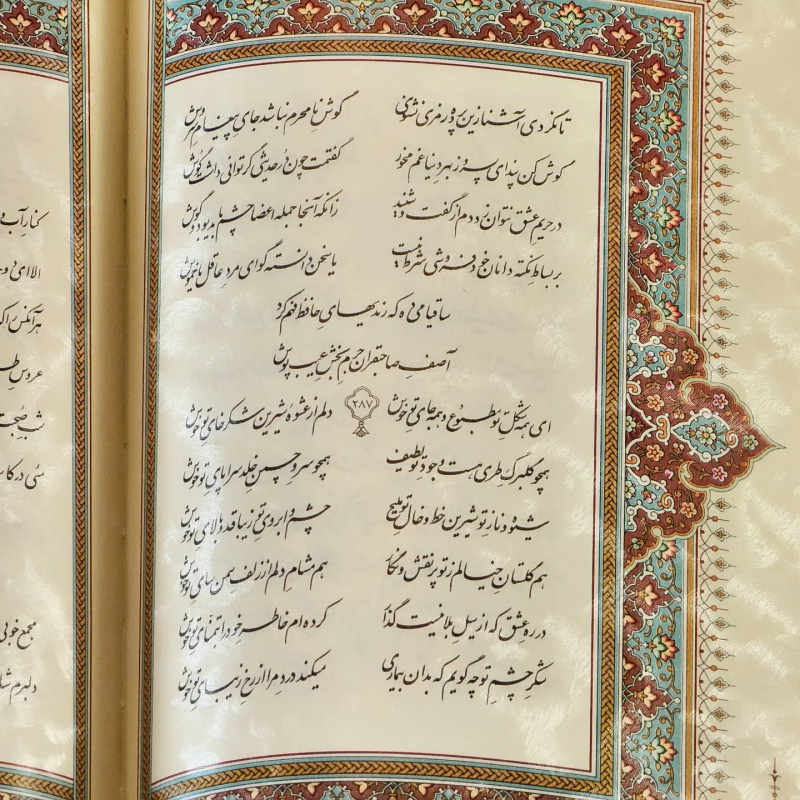 تا نگردی آشنا زین پرده رمزی نشنوی گوش نامحرم نباشد جای پیغام سروش
گوش کن پند ای پسر وز بهر دنیا غم مخور گفتمت چون در حدیثی گر توانی داشت گوش
در حریم عشق نتوان زد دم از گفت و شنید زانکه آنجا جمله اعضا چشم باید بود و گوش
بر بساط نکته دانان خودفروشی شرط نیست یا سخن دانسته گو ای مرد عاقل یا خموش
ساقیا می ده که رندیهای حافظ فهم کرد
آصف صاحبقران جرم بخش عیب پوش
۲۸۷
ای همه شکل تو مطبوع و همه جای تو خوش دلم از عشوهٔ شیرین شکرخای تو خوش
همچو گلبرگ طری هست وجود تو لطیف همچو سرو چمن خلد سراپای تو خوش
شیوه و ناز تو شیرین خط و خال تو ملیح چشم و ابروی تو زیبا قد و بالای تو خوش
هم گلستان خیالم ز تو پر نقش و نگار هم مشام دلم از زلف سمن سای تو خوش
در ره عشق که از سیل بلا نیست گذار کرده ام خاطر خود را بتمنای تو خوش
شکر چشم تو چه گویم که بدان بیماری میکند درد مرا از رخ زیبای تو خوش
کنار آب و
الا ای
هر آنکس را
عروس
شب صحبت
می در
مجمع خوبی
دلبرم